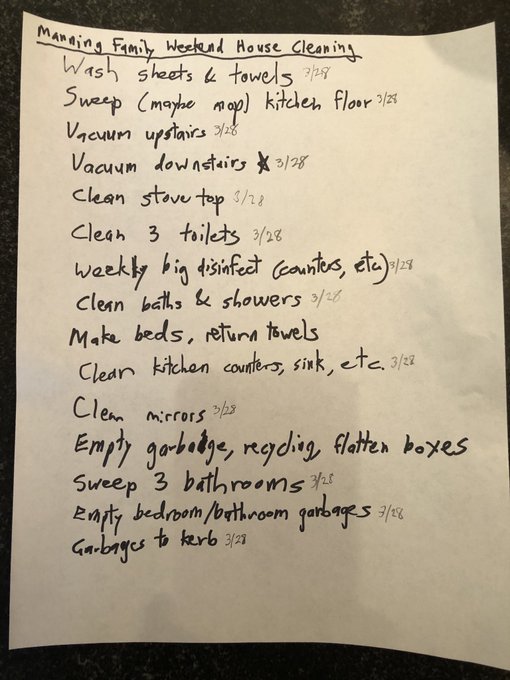 Manning Family Weekend House Cleaning
Wash sheets & towels 3/28
Sweep (maybe mop) kitchen floor 3/28
Vacuum upstairs 3/28
Vacuum downstairs 3/28
Clean stove top 3/28
Clean 3 toilets 3/28
Weekly big disinfect (counters, etc.) 3/28
Clean baths & showers 3/28
Make beds, return towels
Clean kitchen counters, sink, etc. 3/28
Clean mirrors 3/28
Empty garbage, recycling, flatten boxes
Sweep 3 bathrooms 3/28
Empty bedroom/bathroom garbages 3/28
Garbages to kerb 3/28